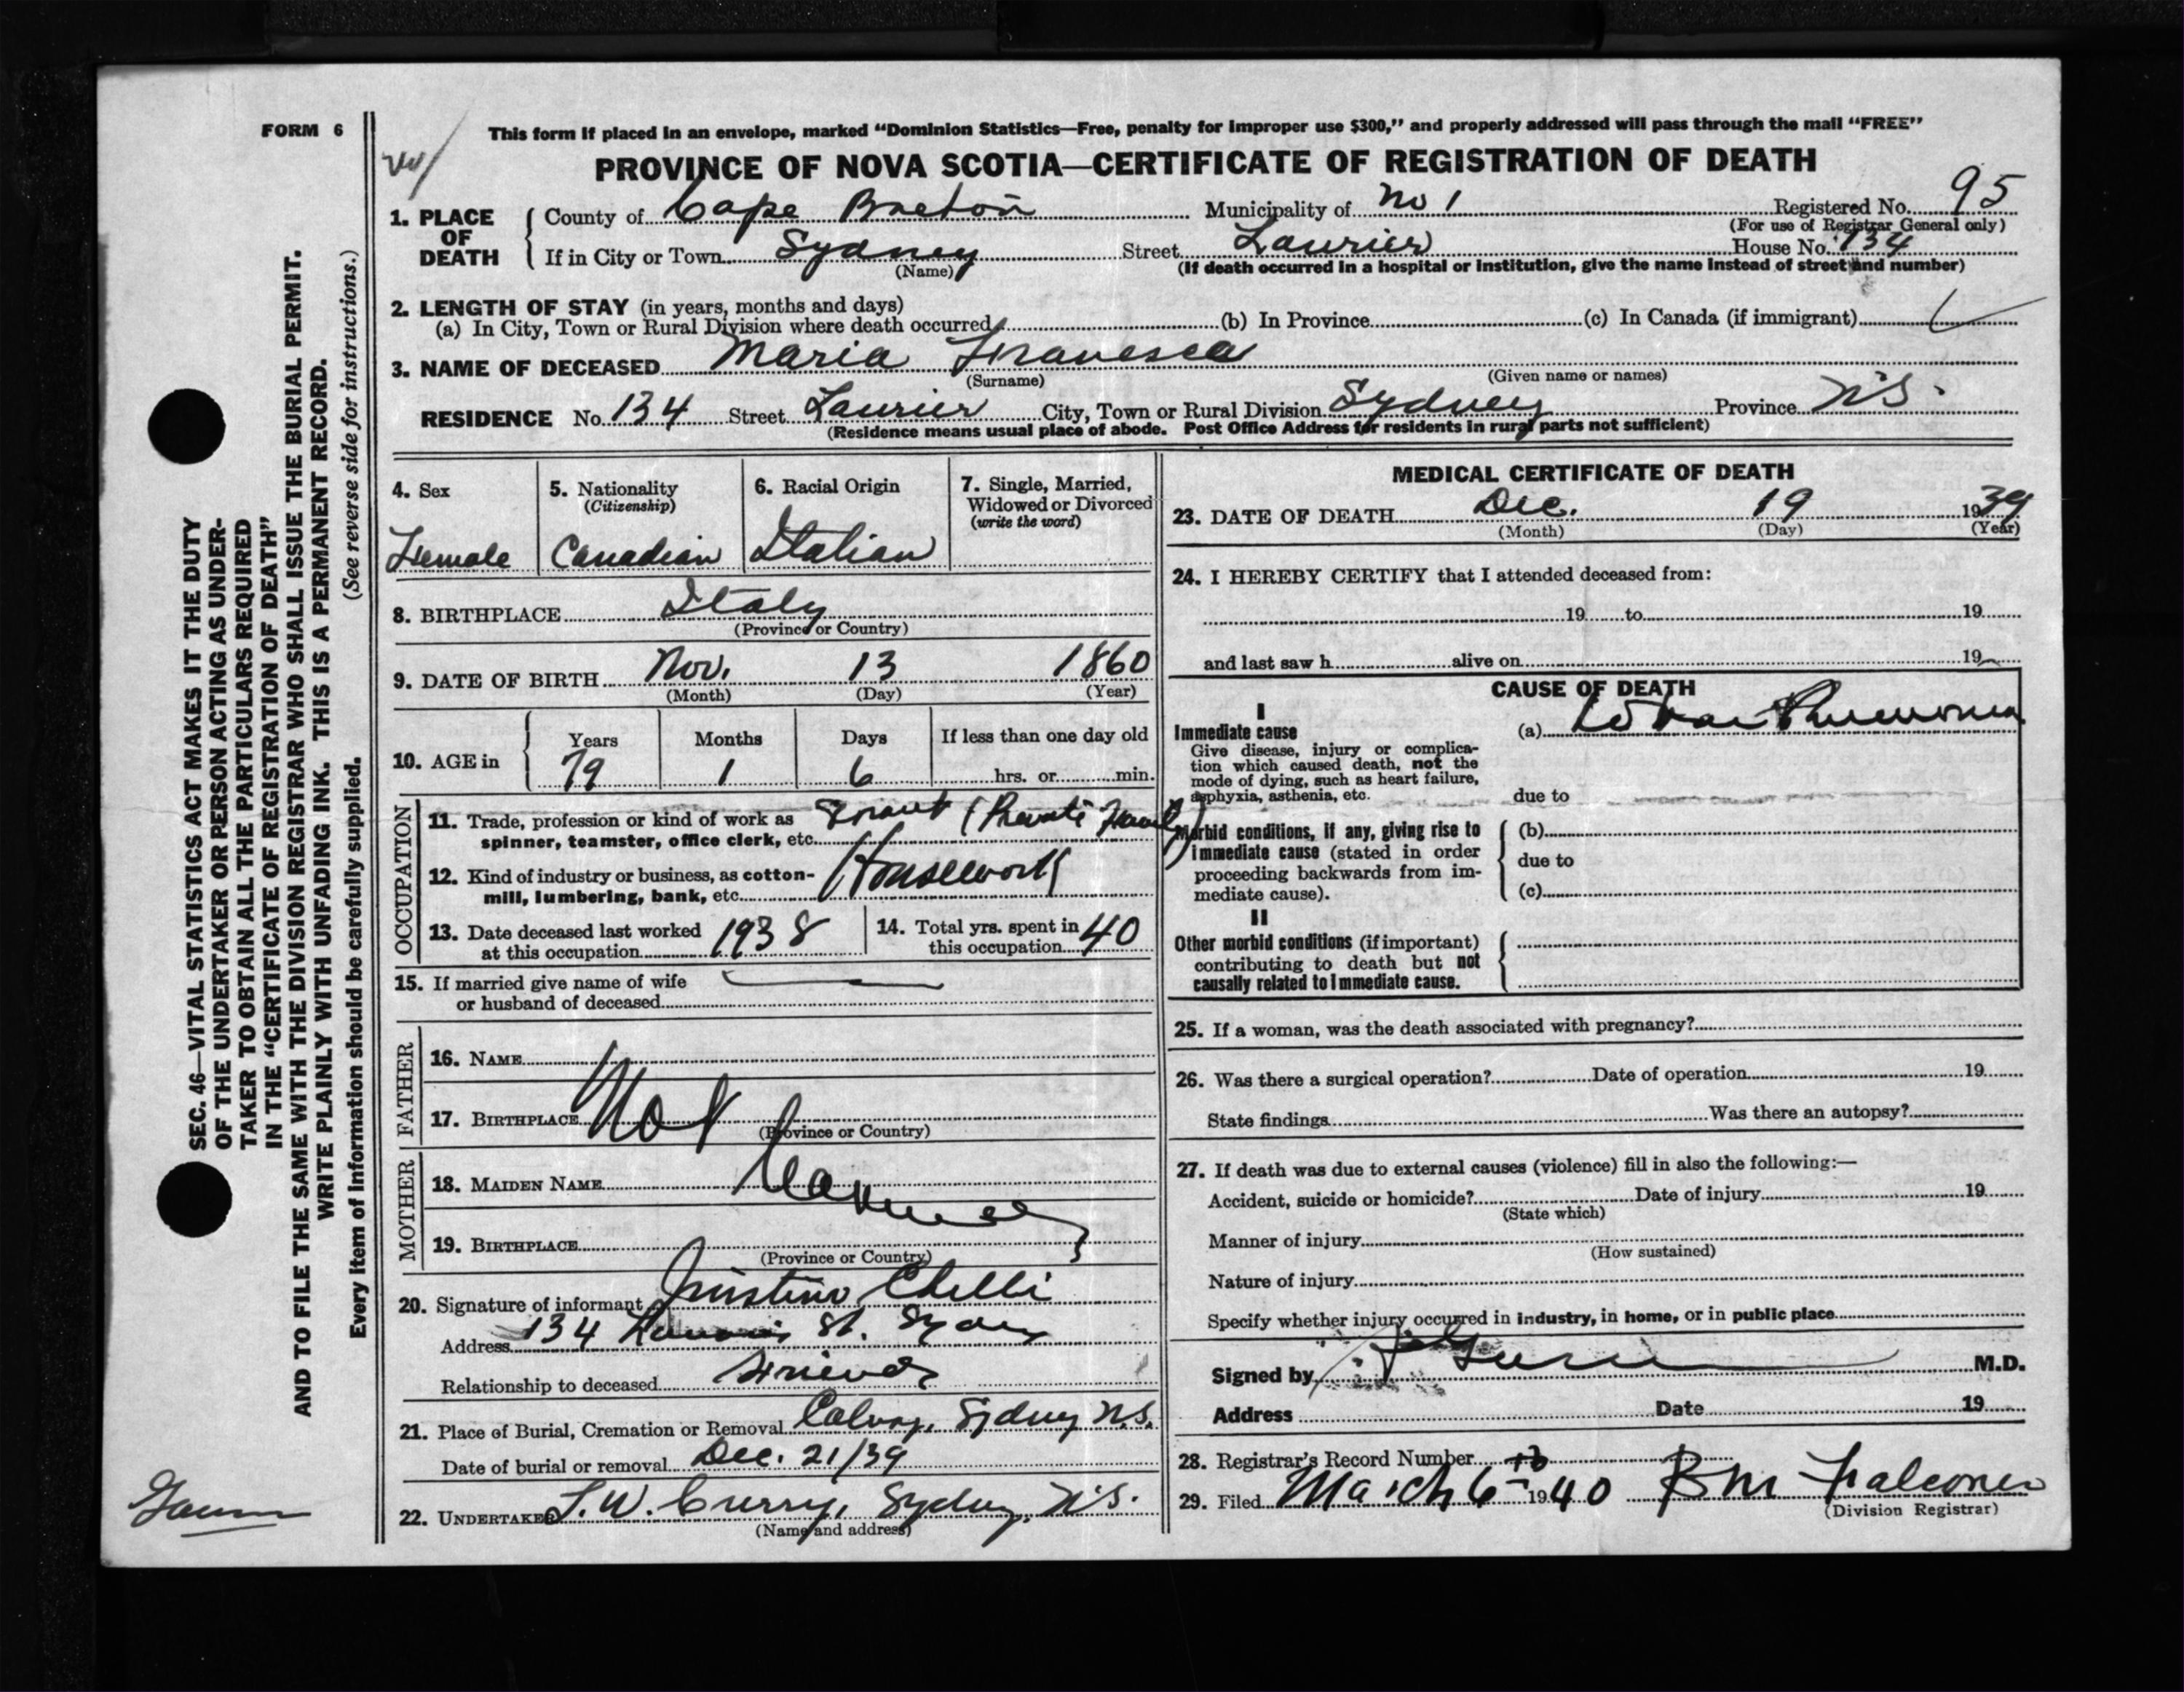 FORM 6
This form if placed in an envelope, marked “Dominion Statistics—Free, penalty for improper use $300,” and properly addressed will pass through the mail “FREE”
PROVINCE OF NOVA SCOTIA—CERTIFICATE OF REGISTRATION OF DEATH
1. PLACE OF DEATH County of Cape Breton Municipality of No 1 Registered No. 95
(For use of Registrar General only)
If in City or Town Sydney Street Laurier House No. 134
(Name) (If death occurred in a hospital or institution, give the name instead of street and number)
2. LENGTH OF STAY (in years, months and days)
(a) In City, Town or Rural Division where death occurred (b) In Province (c) In Canada (if immigrant)
3. NAME OF DECEASED Maria
(Surname) (Given name or names)
RESIDENCE No. 134 Street Laurier City, Town or Rural Division Sydney Province N.S.
(Residence means usual place of abode. Post Office Address for residents in rural parts not sufficient)
4. Sex Female
5. Nationality (Citizenship) Canadian
6. Racial Origin Italian
7. Single, Married, Widowed or Divorced (write the word)
8. BIRTHPLACE Italy
(Province or Country)
9. DATE OF BIRTH Nov. 13 1860
(Month) (Day) (Year)
10. AGE in Years 79 Months 1 Days 6 If less than one day old hrs. or min.
OCCUPATION
11. Trade, profession or kind of work as (Private Family)
spinner, teamster, office clerk, etc.
12. Kind of industry or business, as cotton- Housework
mill, lumbering, bank, etc.
13. Date deceased last worked at this occupation 1938
14. Total yrs. spent in this occupation 40
15. If married give name of wife
or husband of deceased
FATHER
16. NAME
17. BIRTHPLACE Not
(Province or Country)
MOTHER
18. MAIDEN NAME
19. BIRTHPLACE
(Province or Country)
20. Signature of informant Chelli
Address 134 St. Sydney
Relationship to deceased Friend
21. Place of Burial, Cremation or Removal Calvary, Sydney N.S.
Date of burial or removal Dec. 21/39
22. UNDERTAKER T. W. Curry, Sydney, N.S.
(Name and address)
MEDICAL CERTIFICATE OF DEATH
23. DATE OF DEATH Dec. 19 1939
(Month) (Day) (Year)
24. I HEREBY CERTIFY that I attended deceased from:
19 to 19
and last saw h alive on 19
CAUSE OF DEATH
I
Immediate cause (a) Lobar Pneumonia
Give disease, injury or complica-
tion which caused death, not the
mode of dying, such as heart failure,
asphyxia, asthenia, etc. due to
Morbid conditions, if any, giving rise to (b)
immediate cause (stated in order due to
proceeding backwards from im-
mediate cause). (c)
II
Other morbid conditions (if important)
contributing to death but not
causally related to immediate cause.
25. If a woman, was the death associated with pregnancy?
26. Was there a surgical operation? Date of operation 19
State findings Was there an autopsy?
27. If death was due to external causes (violence) fill in also the following:—
Accident, suicide or homicide? Date of injury 19
(State which)
Manner of injury
(How sustained)
Nature of injury
Specify whether injury occurred in industry, in home, or in public place
Signed by M.D.
Address Date 19
28. Registrar's Record Number
29. Filed March 6 1940 B M Falconer
(Division Registrar)
SEC. 46—VITAL STATISTICS ACT MAKES IT THE DUTY
OF THE UNDERTAKER OR PERSON ACTING AS UNDER-
TAKER TO OBTAIN ALL THE PARTICULARS REQUIRED
IN THE “CERTIFICATE OF REGISTRATION OF DEATH”
AND TO FILE THE SAME WITH THE DIVISION REGISTRAR WHO SHALL ISSUE THE BURIAL PERMIT.
WRITE PLAINLY WITH UNFADING INK. THIS IS A PERMANENT RECORD.
Every item of Information should be carefully supplied. (See reverse side for instructions.)